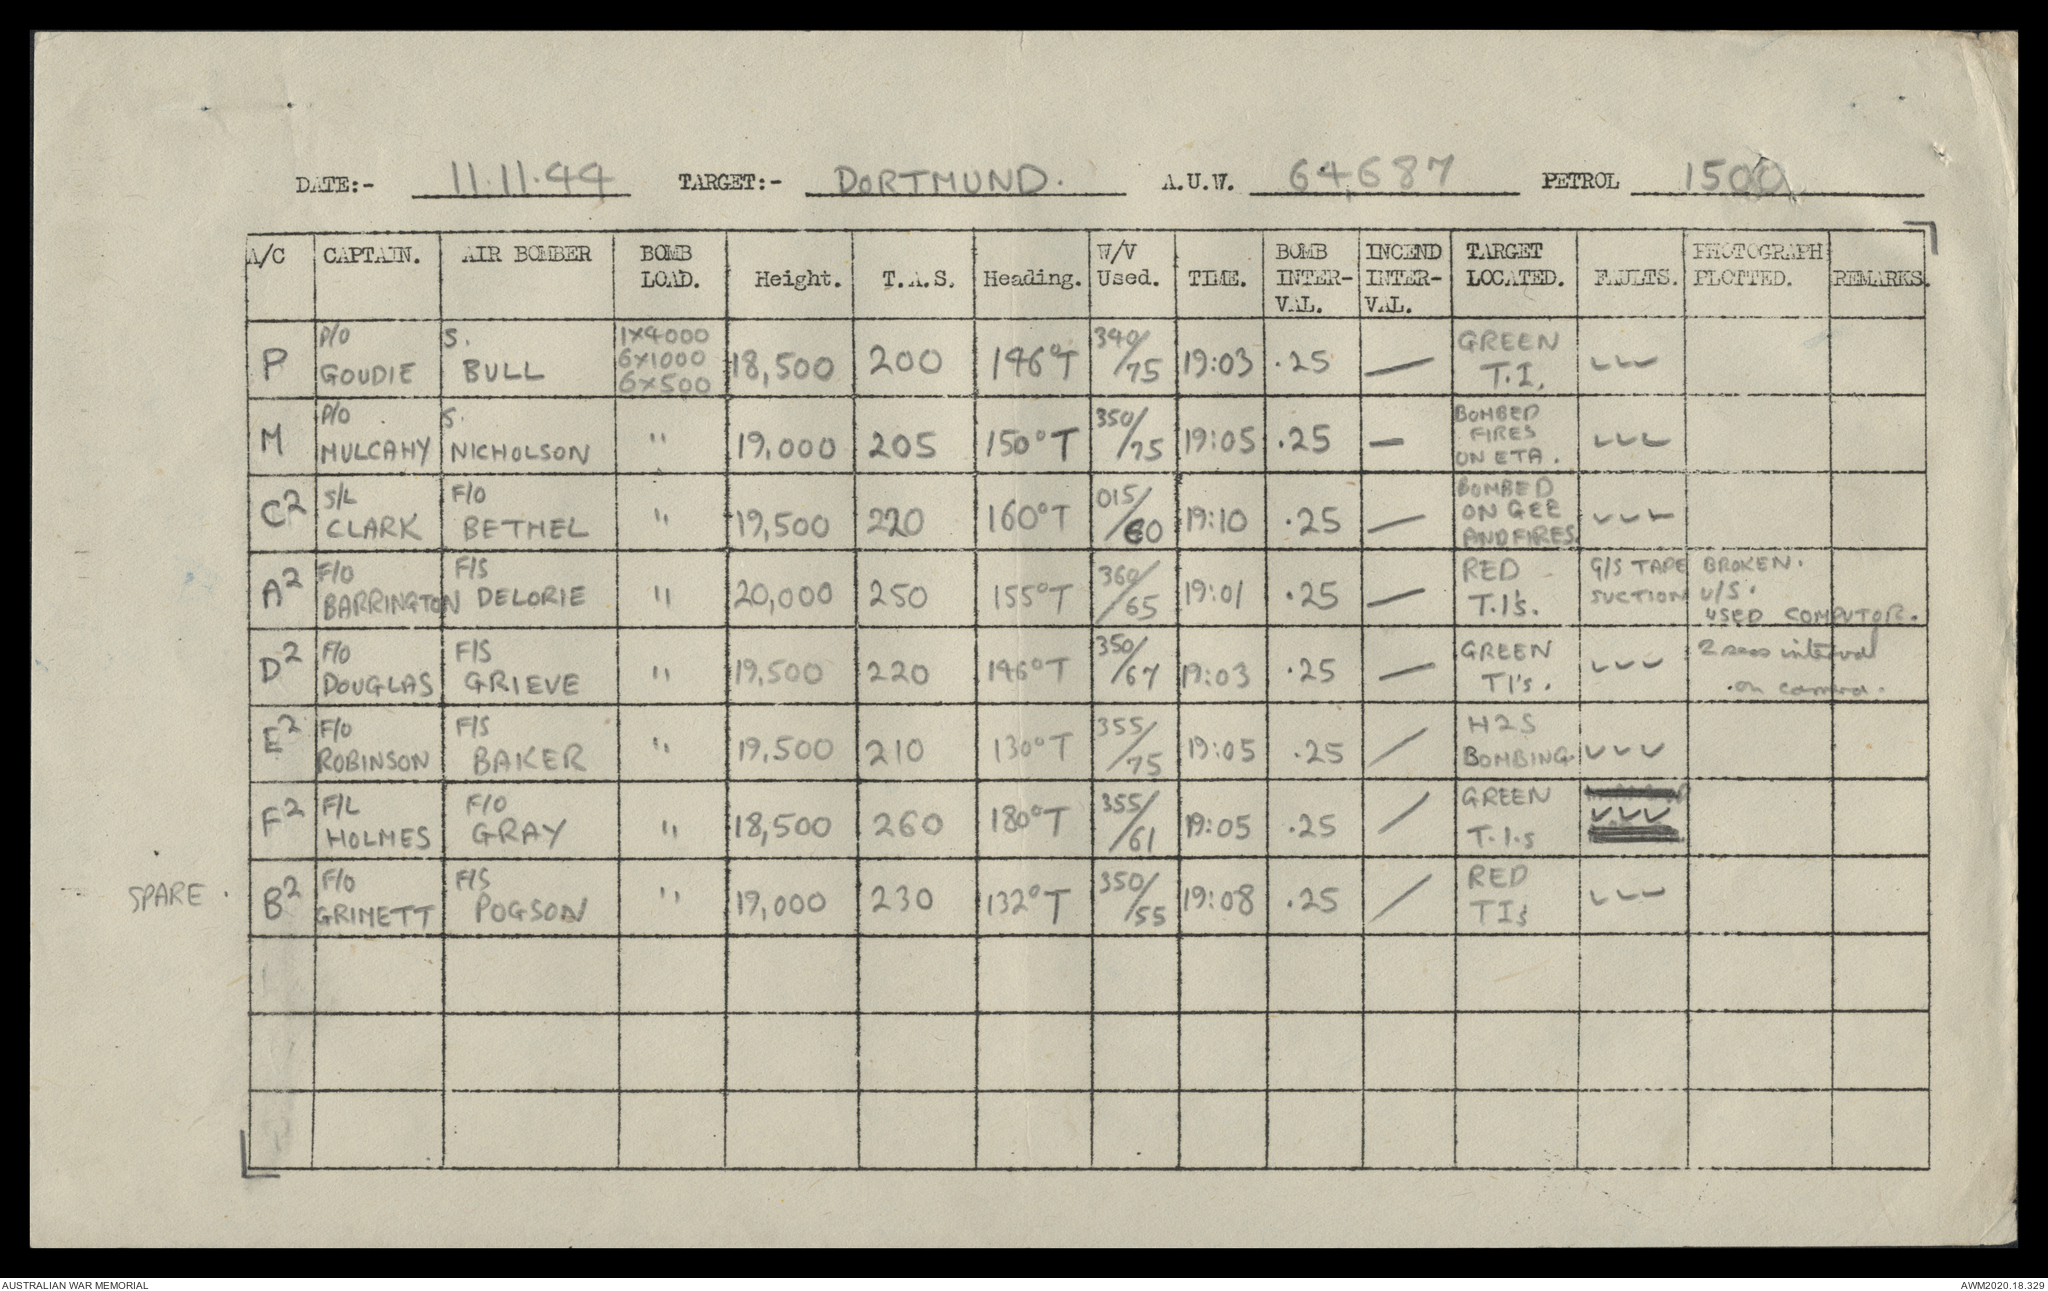 DATE:- 11.11.44 TARGET:- DORTMUND. A.U.W. 64,687 PETROL 1500
A/C CAPTAIN. AIR BOMBER BOMB LOAD. Height. T.A.S. Heading. W/V Used. TIME. BOMB INTER-VAL. INCEND INTER-VAL. TARGET LOCATED. FAULTS. PHOTOGRAPH PLOTTED. REMARKS.
P P/O GOUDIE S. BULL 1x4000 6x1000 6x500 18,500 200 146°T 340/75 19:03 .25 — GREEN T.I. ✓✓✓
M P/O MULCAHY S. NICHOLSON " 19,000 205 150°T 350/75 19:05 .25 — BOMBED FIRES ON ETA. ✓✓✓
C2 S/L CLARK F/O BETHEL " 19,500 220 160°T 015/60 19:10 .25 — BOMBED ON GEE AND FIRES. ✓✓✓
A2 F/O BARRINGTON F/S DELORIE " 20,000 250 155°T 360/65 19:01 .25 — RED T.I's. G/S TAPE BROKEN. SUCTION U/S. USED COMPUTOR.
D2 F/O DOUGLAS F/S GRIEVE " 19,500 220 146°T 350/67 19:03 .25 — GREEN TI's. ✓✓✓ 2 secs interval on camera.
E2 F/O ROBINSON F/S BAKER " 19,500 210 130°T 355/75 19:05 .25 / H2S BOMBING. ✓✓✓
F2 F/L HOLMES F/O GRAY " 18,500 260 180°T 355/61 19:05 .25 / GREEN T.I.s ✓✓✓
SPARE. B2 F/O GRIMETT F/S POGSON " 19,000 230 132°T 350/55 19:08 .25 / RED TIs ✓✓✓
AUSTRALIAN WAR MEMORIAL AWM2020.18.329